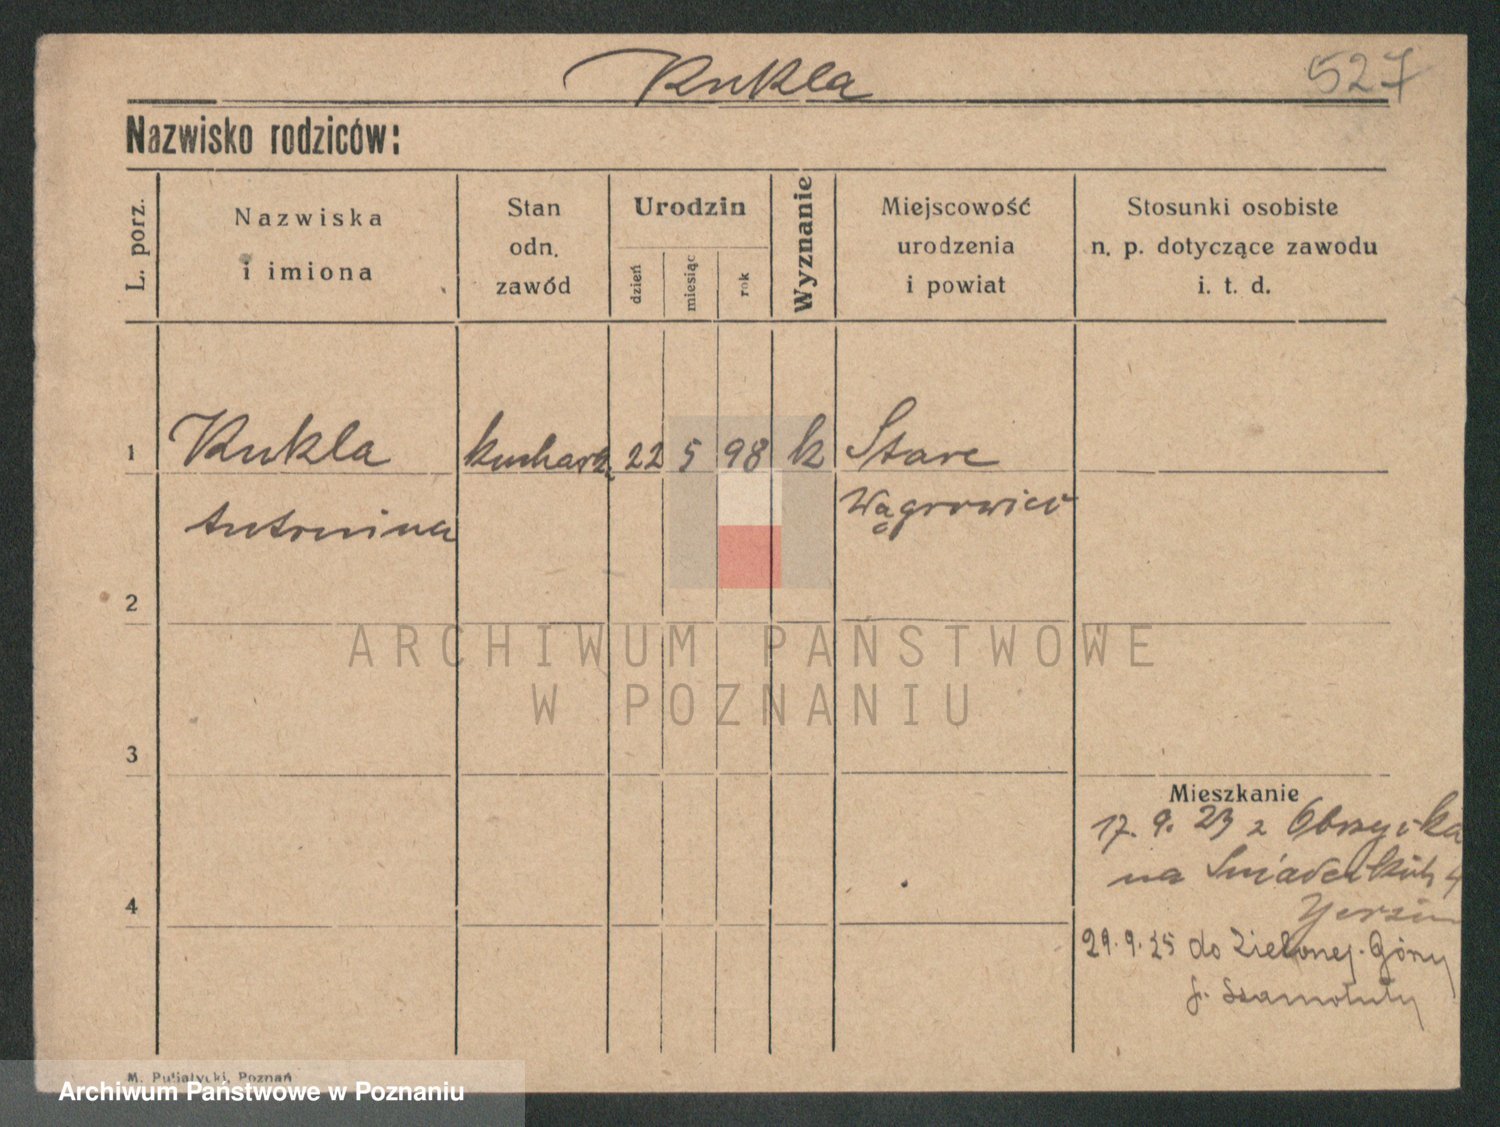 Kukla
527
Nazwisko rodziców:
L. porz.
Nazwiska
i imiona
Stan
odn.
zawód
Urodzin
dzień
miesiąc
rok
Wyznanie
Miejscowość
urodzenia
i powiat
Stosunki osobiste
n. p. dotyczące zawodu
i. t. d.
1 Kukla kuchark. 22 5 98 k Stare
Antonina Wągrowiec
2
3
4
Mieszkanie
17. 9. 23 z Obrzycka
na Śniadeckich 4
29. 9. 25 do Zielonej-Góry
p. Szamotuły
ARCHIWUM PAŃSTWOWE
W POZNANIU
M. Putiatycki, Poznań
Archiwum Państwowe w Poznaniu